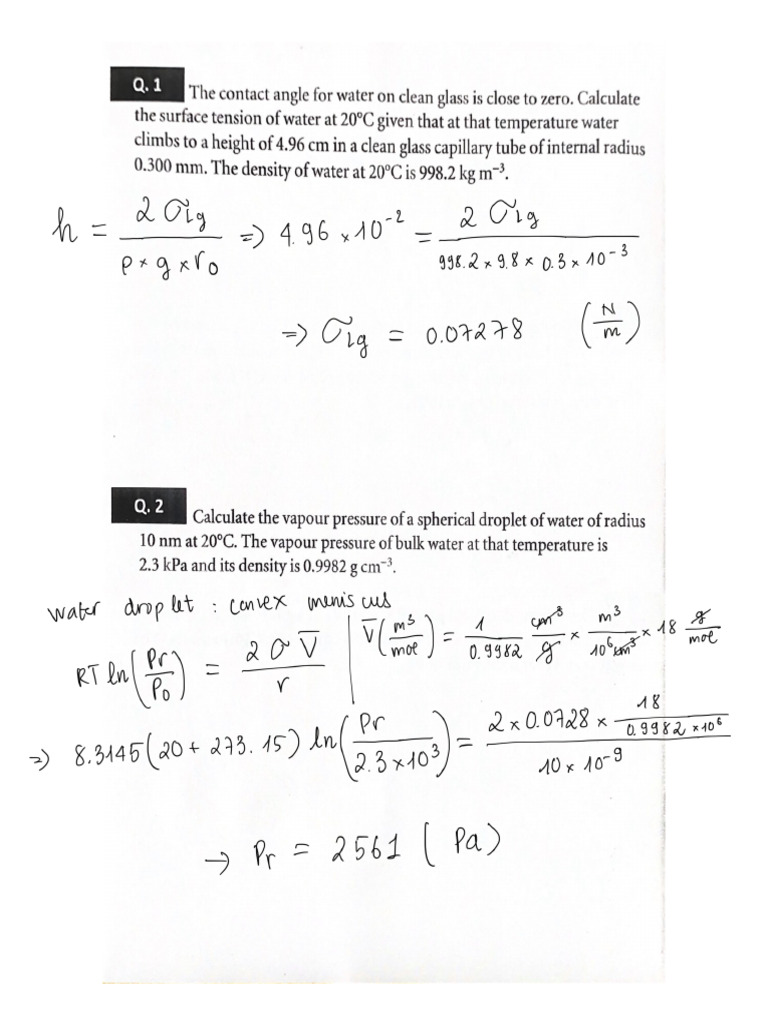 Q. 1 The contact angle for water on clean glass is close to zero. Calculate
the surface tension of water at 20°C given that at that temperature water
climbs to a height of 4.96 cm in a clean glass capillary tube of internal radius
0.300 mm. The density of water at 20°C is 998.2 kg m⁻³.
h = 2 σlg / (ρ × g × r₀) => 4.96 × 10⁻² = 2 σlg / (998.2 × 9.8 × 0.3 × 10⁻³)
=> σlg = 0.07278 (N/m)
Q. 2 Calculate the vapour pressure of a spherical droplet of water of radius
10 nm at 20°C. The vapour pressure of bulk water at that temperature is
2.3 kPa and its density is 0.9982 g cm⁻³.
water droplet : convex meniscus
RT ln(Pr/P₀) = 2 σ V̅ / r | V̅ (m³/mol) = 1/0.9982 cm³/g × m³/10⁶ cm³ × 18 g/mol
=> 8.3145(20 + 273.15) ln(Pr / 2.3 × 10³) = (2 × 0.0728 × 18 / (0.9982 × 10⁶)) / (10 × 10⁻⁹)
→ Pr = 2561 ( Pa)